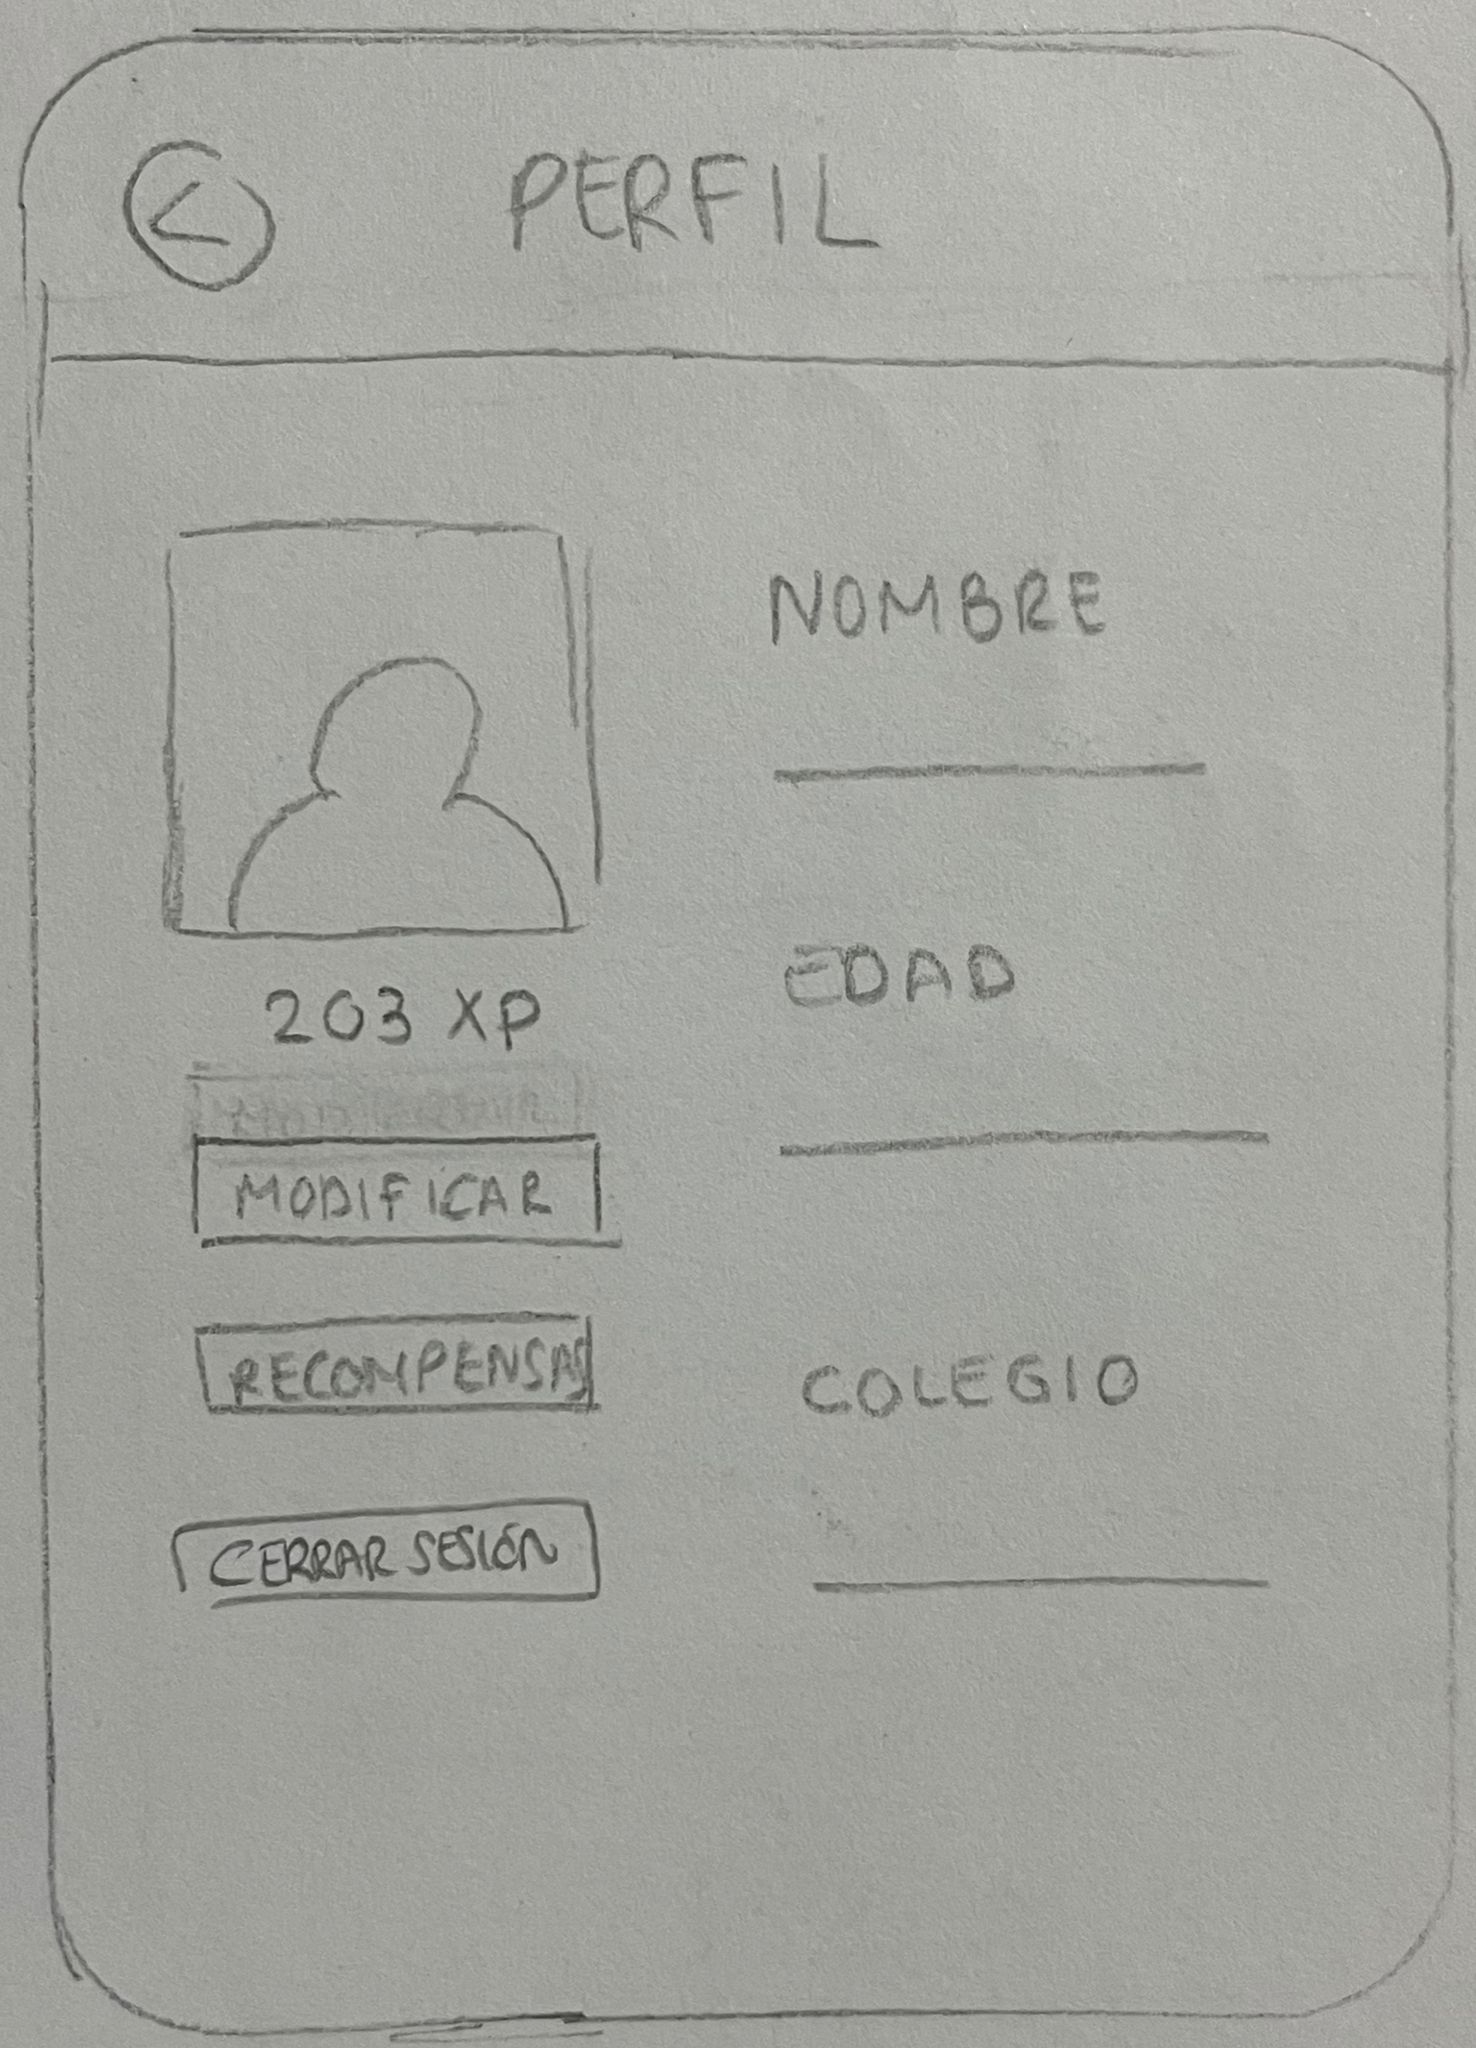 PERFIL
203 XP
MODIFICAR
RECOMPENSAS
CERRAR SESIÓN
NOMBRE
EDAD
COLEGIO